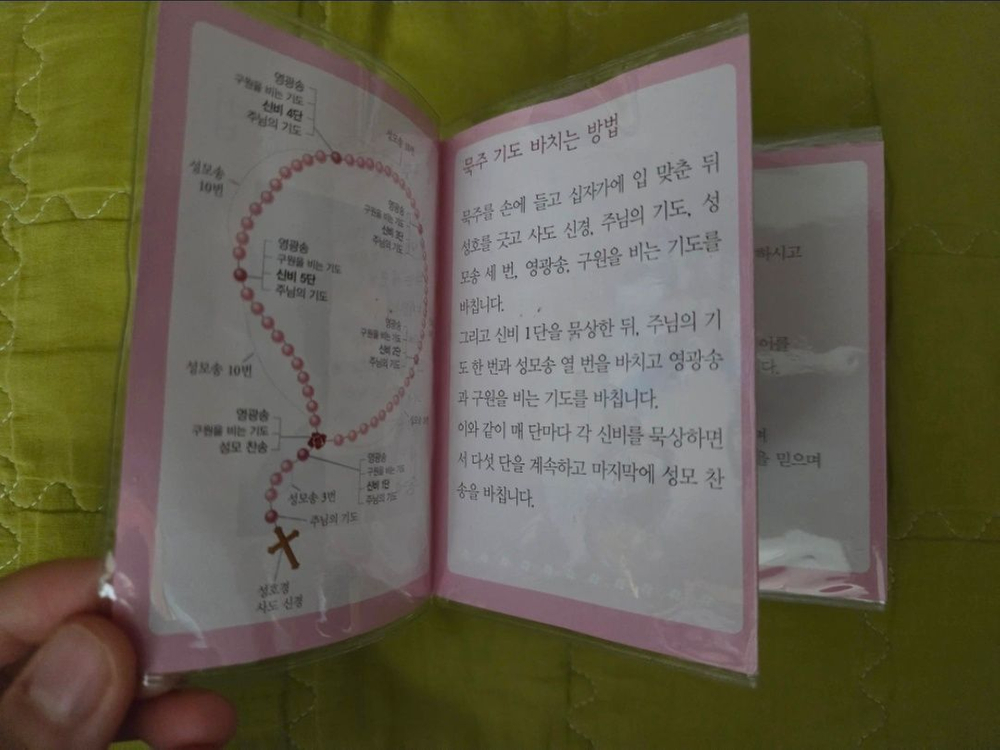 영광송
구원을 비는 기도
신비 4단
주님의 기도
성모송
10번
영광송
구원을 비는 기도
신비 3단
주님의 기도
영광송
구원을 비는 기도
신비 5단
주님의 기도
영광송
구원을 비는 기도
신비 2단
주님의 기도
성모송 10번
영광송
구원을 비는 기도
성모 찬송
영광송
구원을 비는 기도
신비 1단
주님의 기도
성모송 3번
주님의 기도
성호경
사도 신경
묵주 기도 바치는 방법
묵주를 손에 들고 십자가에 입 맞춘 뒤
성호를 긋고 사도 신경, 주님의 기도, 성
모송 세 번, 영광송, 구원을 비는 기도를
바칩니다.
그리고 신비 1단을 묵상한 뒤, 주님의 기
도 한 번과 성모송 열 번을 바치고 영광송
과 구원을 비는 기도를 바칩니다.
이와 같이 매 단마다 각 신비를 묵상하면
서 다섯 단을 계속하고 마지막에 성모 찬
송을 바칩니다.
하시고
를 믿으며